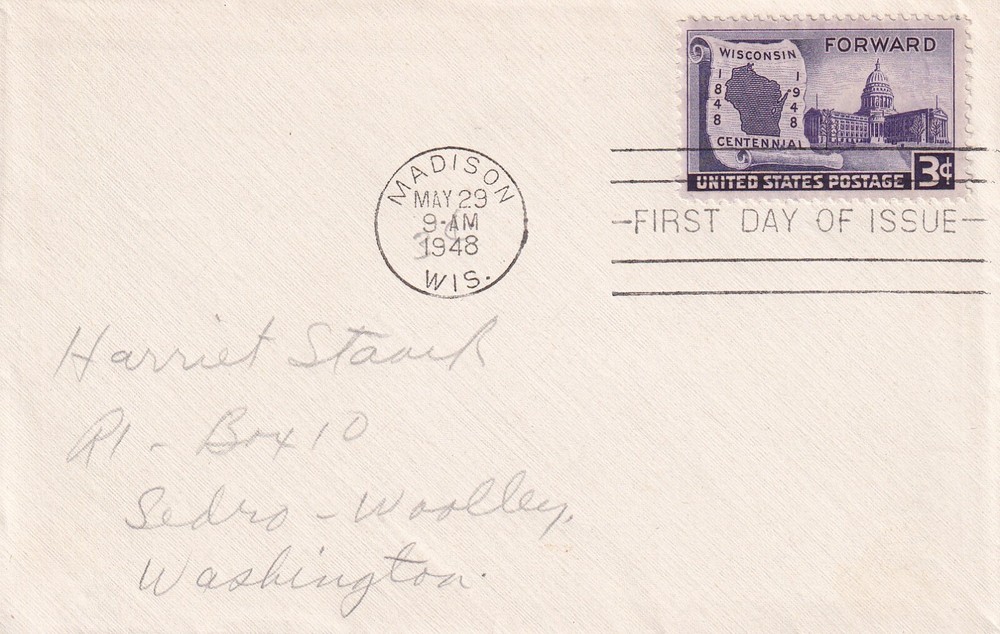 WISCONSIN
1848
1948
CENTENNIAL
FORWARD
UNITED STATES POSTAGE 3¢
MADISON
MAY 29
9-AM
1948
WIS.
FIRST DAY OF ISSUE
Harriet
R1 - Box 10
Sedro - Woolley,
Washington.